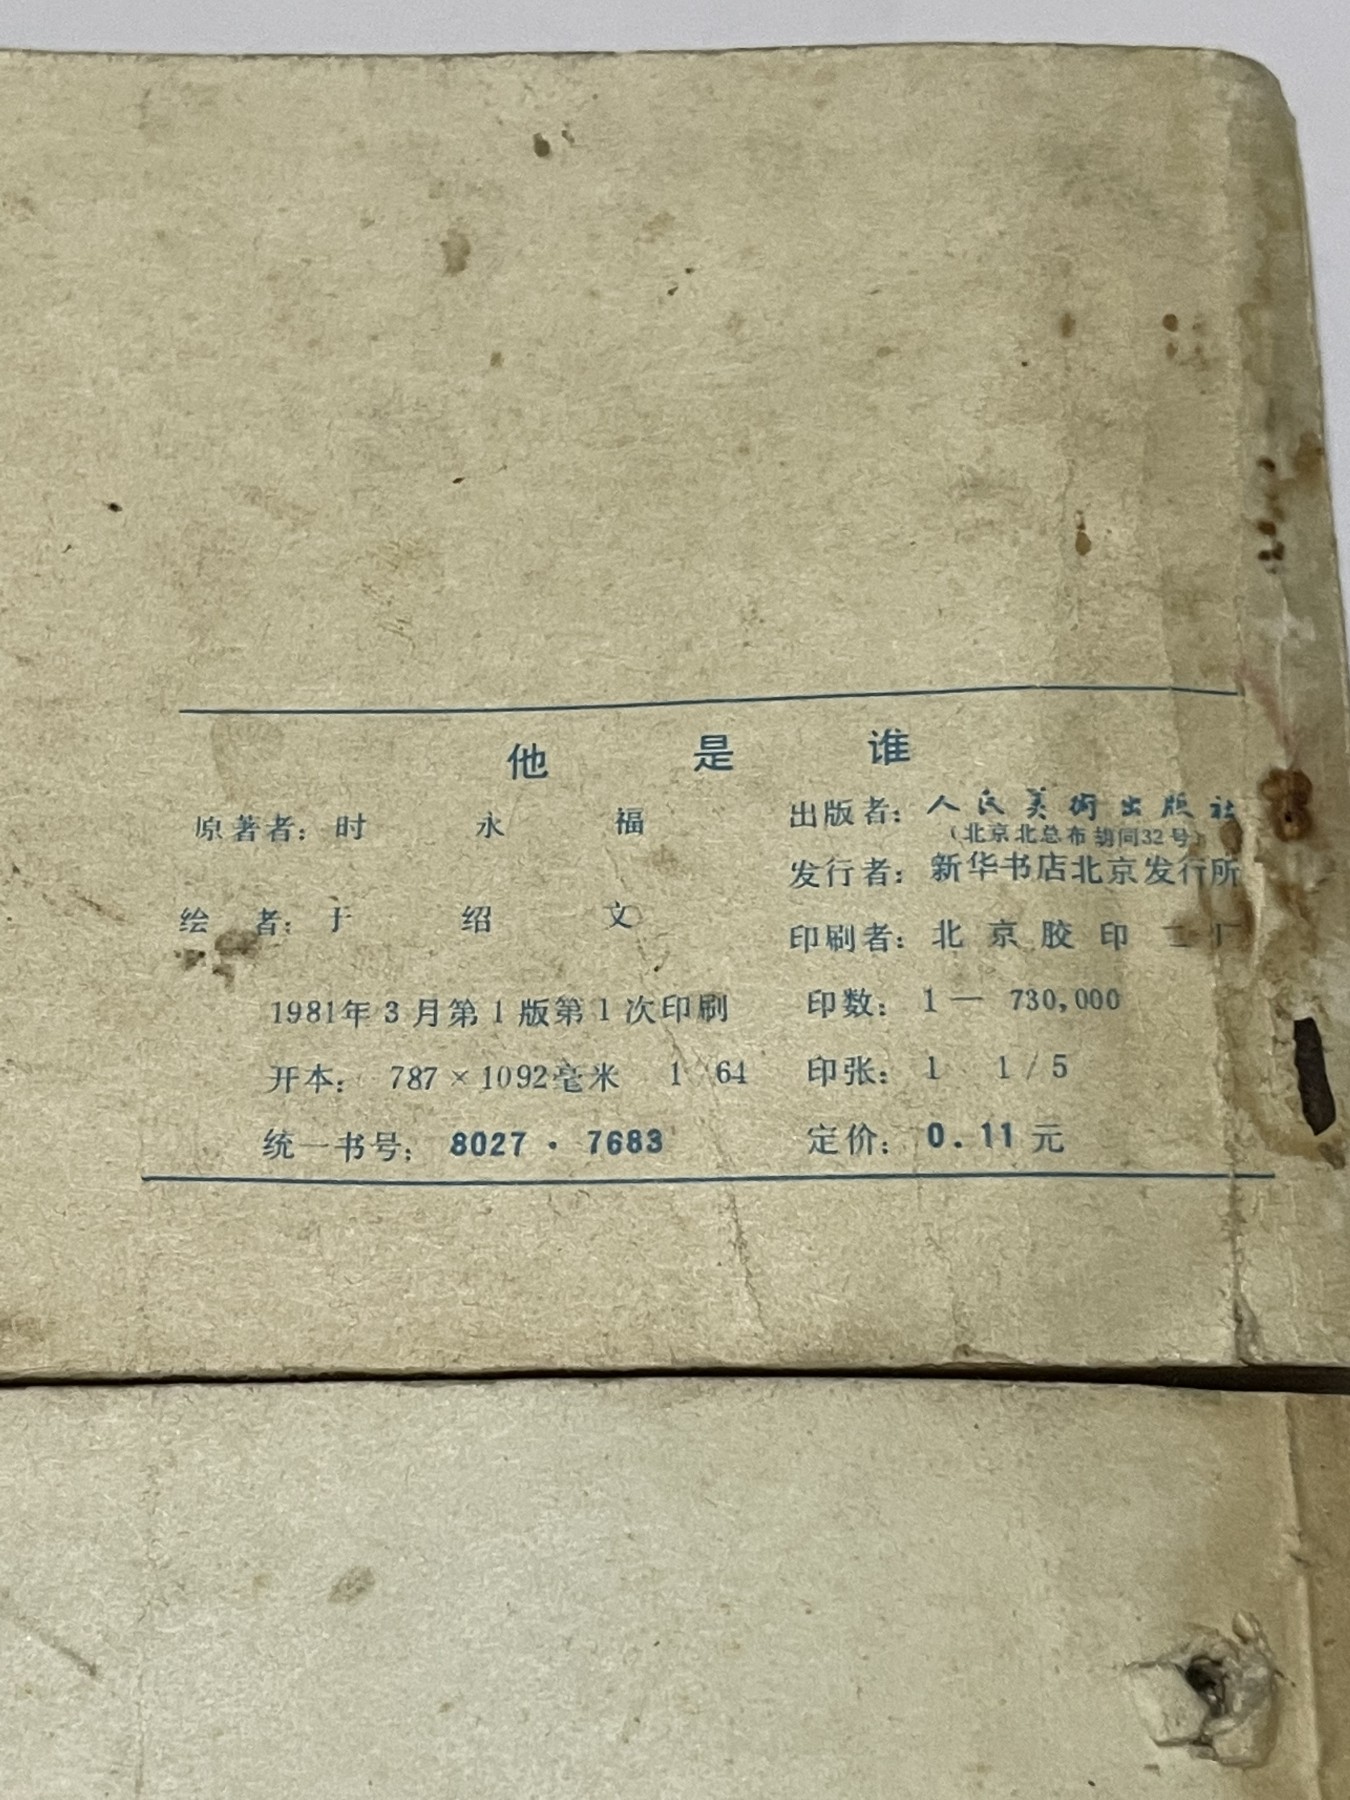 他是谁
原著者：时永福
绘者：于绍文
1981年3月第1版第1次印刷
开本：787×1092毫米 1/64
统一书号：8027·7683
出版者：人民美術出版社
（北京北总布胡同32号）
发行者：新华书店北京发行所
印刷者：北京胶印二厂
印数：1—730,000
印张：1 1/5
定价：0.11元